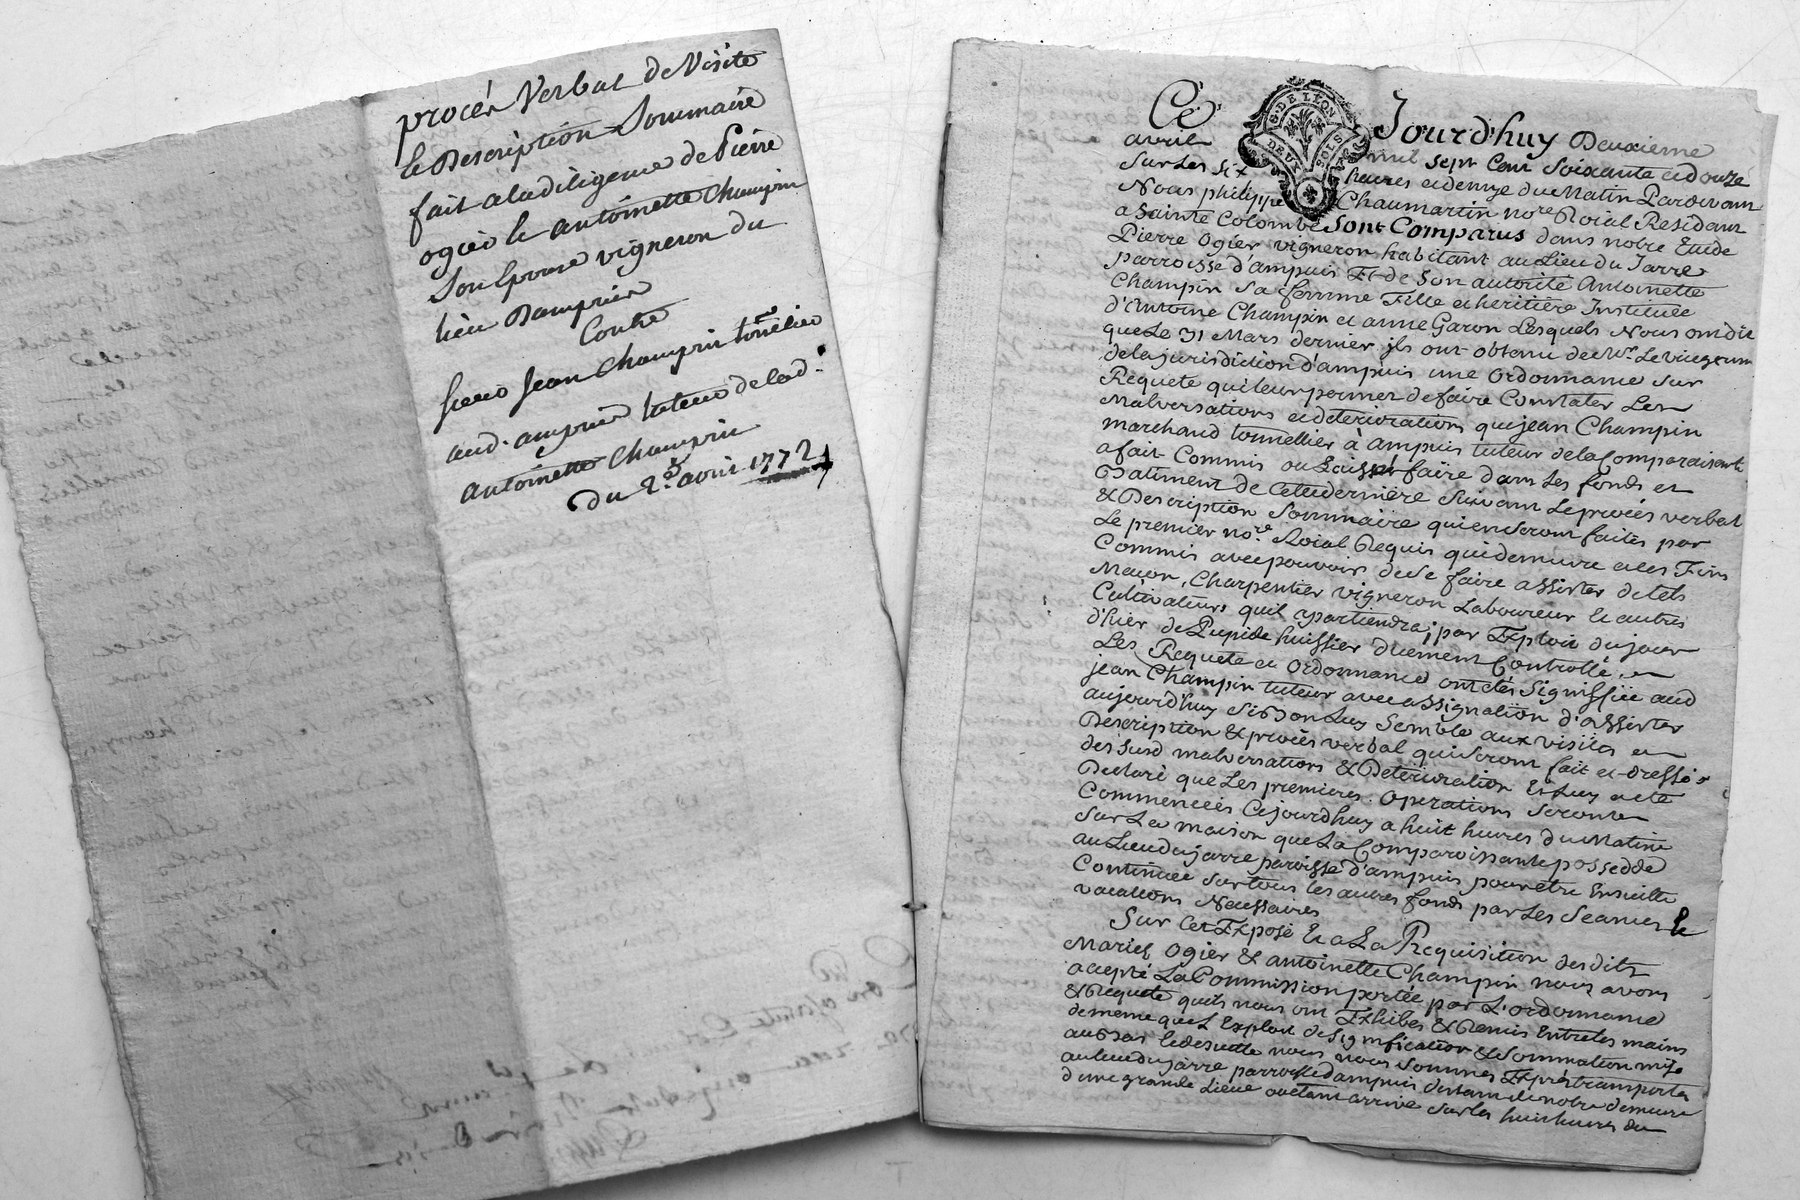 procés Verbal de Visite
le Description Sommaire
fait a la diligeme de Pierre
ogier le antoinette Champin
Son Epouse vigneron du
lieu Dampuis
Contre
Sieur Jean Champin tonnelier
aud. ampuis tuteur de lad.
antoinette Champin
Du 2.e avril 1772
Ce Jourd'huy Deuxieme
avril mil sept Cent Soixante et douze
Sur Les six heures et demye du Matin Pardevant
Nous philippe Chaumartin nore Roial Residant
a Sainte Colombe Sont Comparus dans notre Etude
Pierre Ogier vigneron habitant au Lieu du Jarre
parroisse d'ampuis Et de Son autorité Antoinette
Champin Sa femme Fille et heritière Instituée
d'Antoine Champin et anne Garon Lesquels Nous ont dit
que Le 31 Mars dernier ils ont obtenu de Mr. Le
de la jurisdiction d'ampuis une Ordonnance Sur
Requete qui leur permet de faire Constater Les
Malversations et deteriorations que jean Champin
marchand tonnellier à ampuis tuteur de la Comparaissante
a fait Commis ou Laissé faire dans Les fonds et
Batiment de Cette derniere Suivant Le procés verbal
& Description Sommaire qui en Seront faites par
Le premier nore. Roial Requis qui demeure a ces Fins
Commis avec pouvoir de Se faire assister de tels
Macon, Charpentier vigneron Laboureur le autres
Cultivateurs quil apartiendra; par Exploit du jour
d'hier de huissier duement Controllé,
Les Requete et Ordonnance ont étés Signiffiée aud
jean Champin tuteur avec assignation d'assister
aujourd'huy Si Bon Luy Semble aux visites et
Description & procés verbal qui Seront fait et dressé
des Susd malversations & Deterioration Et Luy a eté
Declaré que Les premieres Operations Seront
Commencées Cejourd'huy a huit heures du Matin
Sur La maison que La Comparoissante possedde
au Lieu du jarre paroisse d'ampuis pour etre Ensuitte
Continuée Sur tous les autres fonds par Les Seances le
vacations Necessaires
Sur Cet Exposé Et a La Requisition desdits
Mariés Ogier & antoinette Champin nous avons
accepté La Commission portée par L'ordonnance
& Requete quils nous ont Exhibés & Remis Entre les mains
de meme que L Exploit de Signification & Sommation mis
au Bas de nous nous Sommes Exprés transporté
au lieu du jarre parroisse dampuis distant de notre demeure
d'une grande Lieue ou etant arrivé Sur les huit heures du
G. DE LYON
DEUX SOLS